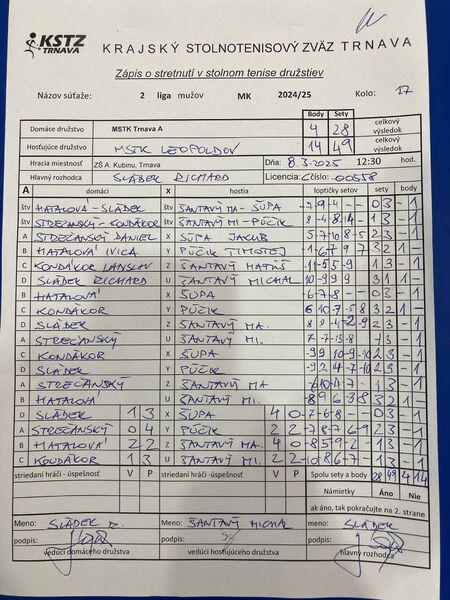 KSTZ
TRNAVA
KRAJSKÝ STOLNOTENISOVÝ ZVÄZ TRNAVA
Zápis o stretnutí v stolnom tenise družstiev
Názov súťaže: 2 liga mužov MK 2024/25 Kolo: 17
Body Sety
Domáce družstvo MSTK Trnava A 4 28 celkový výsledok
Hosťujúce družstvo MSTK LEOPOLDOV 14 49 celkový výsledok
Hracia miestnosť ZŠ A. Kubinu, Trnava Dňa: 8.3.2025 12:30 hod.
Hlavný rozhodca SLÁDEK RICHARD Licencia: Číslo: 00558
A domáci X hostia loptičky setov sety body
štv HATALOVÁ - SLÁDEK štv ŠANTAVÝ MA - ŠUPA -7-9-4 0 3 - 1
štv STREČANSKÝ - KONDÁKOR štv ŠANTAVÝ MI - PÚČIK 1 3 - 1
A STREČANSKÝ DANIEL X ŠUPA JAKUB 2 3 - 1
B HATALOVÁ IVICA Y PÚČIK TIMOTEJ 3 2 1 -
C KONDÁKOR LADISLAV Z ŠANTAVÝ MATÚŠ 1 3 - 1
D SLÁDEK RICHARD U ŠANTAVÝ MICHAL 3 1 1 -
B HATALOVÁ X ŠUPA -6-7-8 0 3 - 1
C KONDÁKOR Y PÚČIK 3 2 1 -
D SLÁDEK Z ŠANTAVÝ MA. 2 3 - 1
A STREČANSKÝ U ŠANTAVÝ MI. 1 3 - 1
C KONDÁKOR X ŠUPA 2 3 - 1
D SLÁDEK Y PÚČIK 2 3 - 1
A STREČANSKÝ Z ŠANTAVÝ MA 1 3 - 1
B HATALOVÁ U ŠANTAVÝ MI. 3 2 1 -
D SLÁDEK 1 3 X ŠUPA 4 0 -7-6-8 0 3 - 1
A STREČANSKÝ 0 4 Y PÚČIK 2 2 2 3 - 1
B HATALOVÁ 2 2 Z ŠANTAVÝ MA. 4 0 2 3 - 1
C KONDÁKOR 1 3 U ŠANTAVÝ MI. 2 2 1 3 - 1
striedaní hráči - úspešnosť V P striedaní hráči - úspešnosť V P Spolu sety a body 28 49 4 14
Námietky Áno Nie
ak áno, tak pokračujte na 2. strane
Meno: SLÁDEK R. Meno: ŠANTAVÝ MICHAL Meno: SLÁDEK
podpis: podpis: podpis:
vedúci domáceho družstva vedúci hosťujúceho družstva hlavný rozhodca